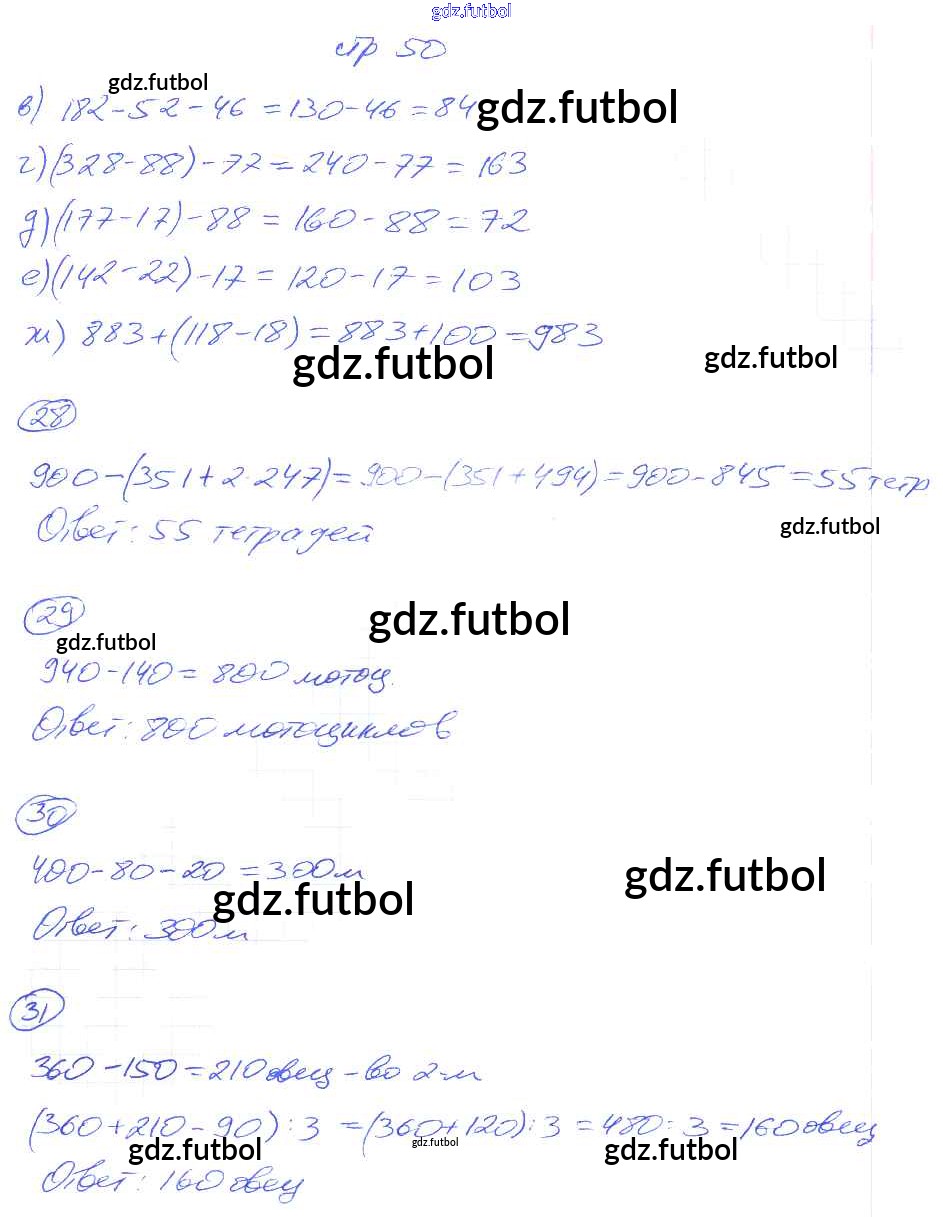 gdz.futbol
стр 50
gdz.futbol
в) 182-52-46 = 130-46 = 84
gdz.futbol
г) (328-88)-77 = 240-77 = 163
д) (177-17)-88 = 160-88 = 72
е) (142-22)-17 = 120-17 = 103
ж) 883+(118-18) = 883+100 = 983
gdz.futbol
gdz.futbol
28
900-(351+2·247) = 900-(351+494) = 900-845 = 55 тетр
Ответ: 55 тетрадей
gdz.futbol
29
gdz.futbol
gdz.futbol
940-140 = 800 мотоц.
Ответ: 800 мотоциклов
30
400-80-20 = 300 м
gdz.futbol
gdz.futbol
Ответ: 300 м
31
360-150 = 210 овец - во 2-м
(360+210-90):3 = (360+120):3 = 480:3 = 160 овец
gdz.futbol
gdz.futbol
gdz.futbol
Ответ: 160 овец